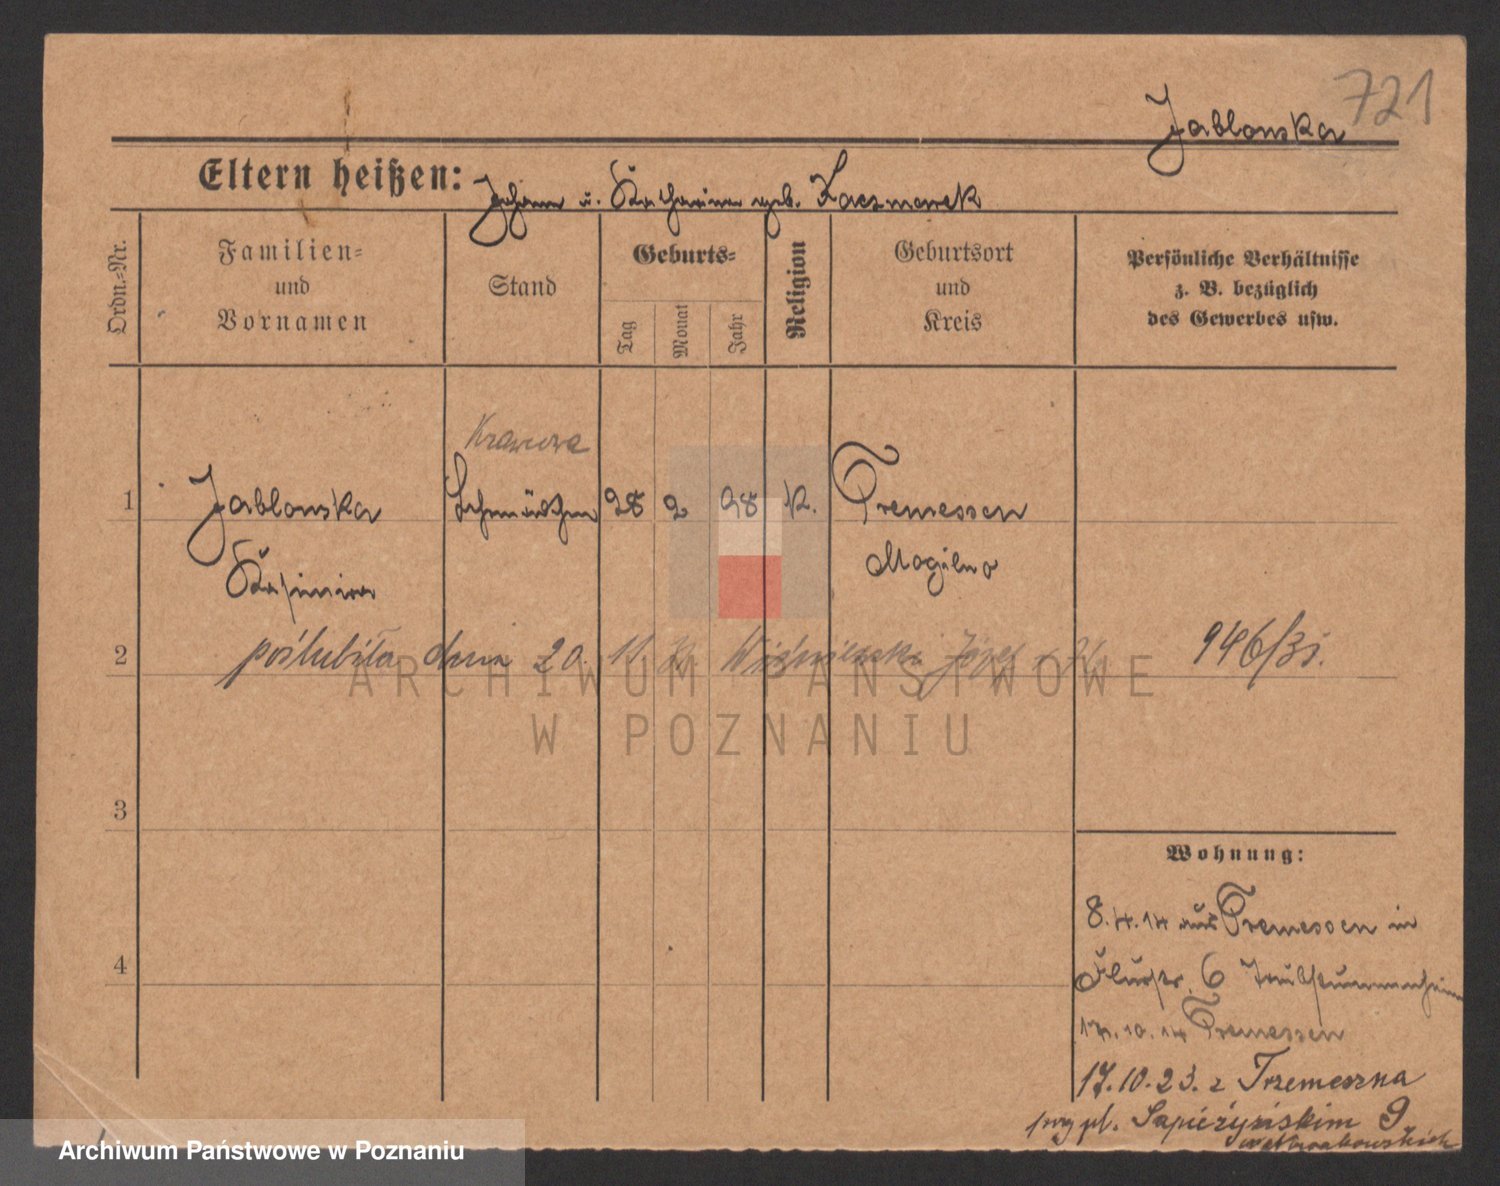 721
Jablonska
Eltern heißen: Johann u. Katharina geb. Kaczmarek
Ordn.-Nr.
Familien-
und
Vornamen
Stand
Geburts-
Tag
Monat
Jahr
Religion
Geburtsort
und
Kreis
Persönliche Verhältnisse
z. B. bezüglich
des Gewerbes usw.
Krawcowa
1 Jablonska Lehrmädchen 28 2 98 K. Tremessen
Kasimira Mogilno
2 poślubiła dnia 20. 11 Józef 946/31.
ARCHIWUM PAŃSTWOWE
W POZNANIU
3
Wohnung:
8.4.14 aus Tremessen in
4
Flurstr. 6 Taubstummenheim
17.10.14 Tremessen
17.10.23. z Trzemeszna
przy pl. Sapieżyńskim 9
Archiwum Państwowe w Poznaniu